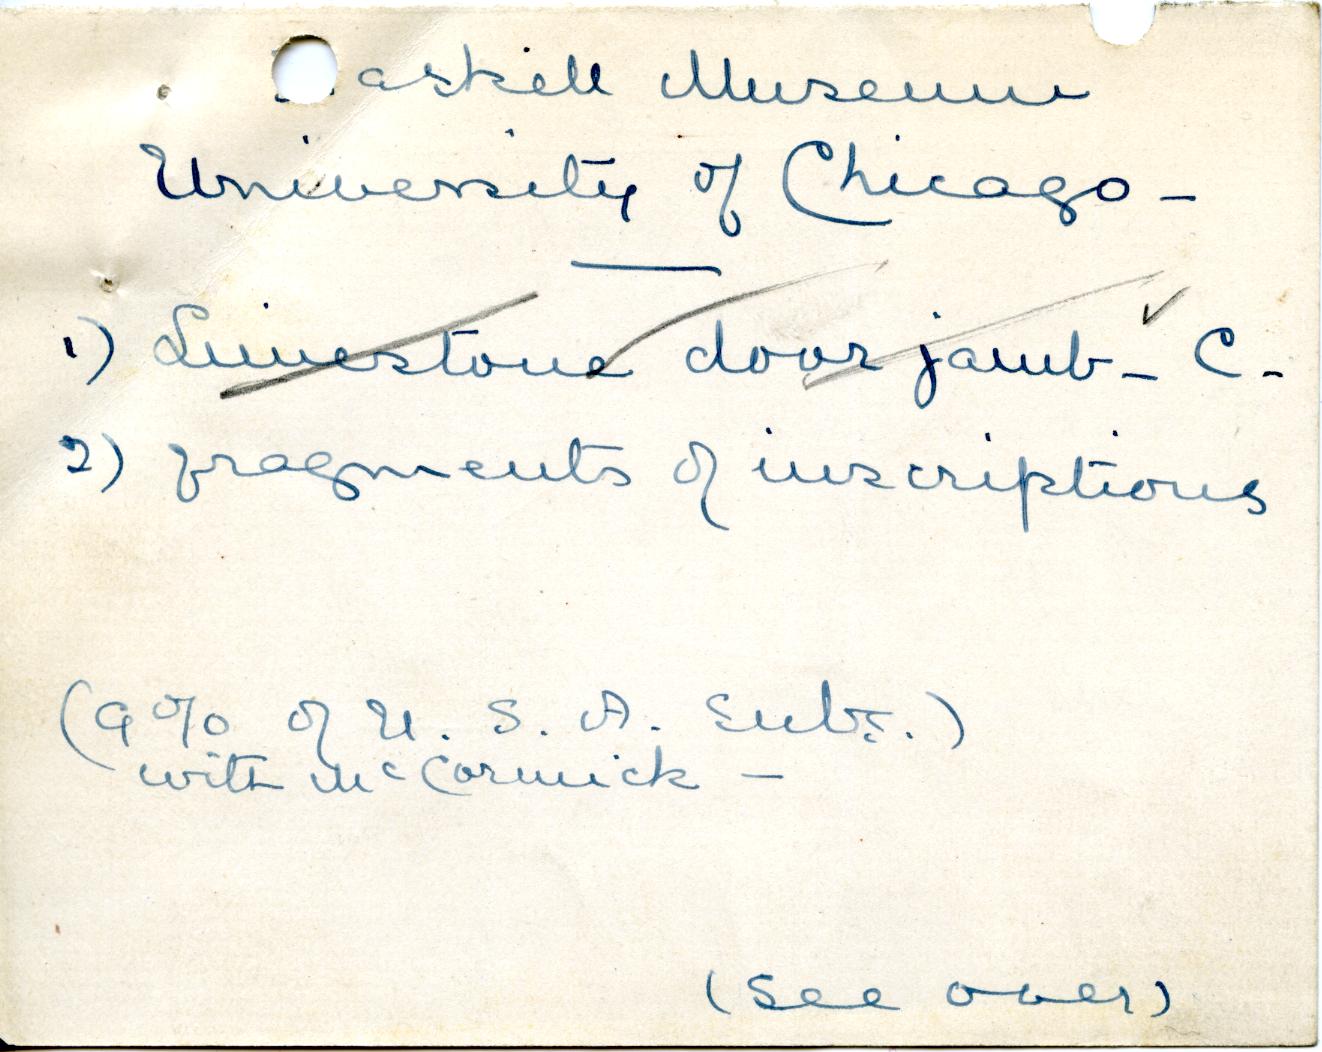 askell Museum
University of Chicago -
1) Limestone door jamb - C.
2) fragments of inscriptions
(9% of U. S. A. Subs.)
with McCormick -
(see over)